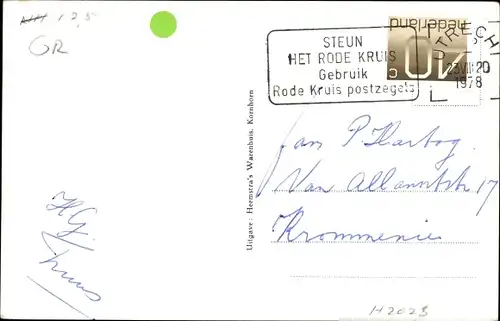 12,5
GR
STEUN
HET RODE KRUIS
Gebruik
Rode Kruis postzegels
nederland
40 c
UTRECHT
23 VII 20
1978
Uitgave: Heemstra's Warenhuis, Kornhorn
Jan P Hartog
Van 17
Krommenie
H2023